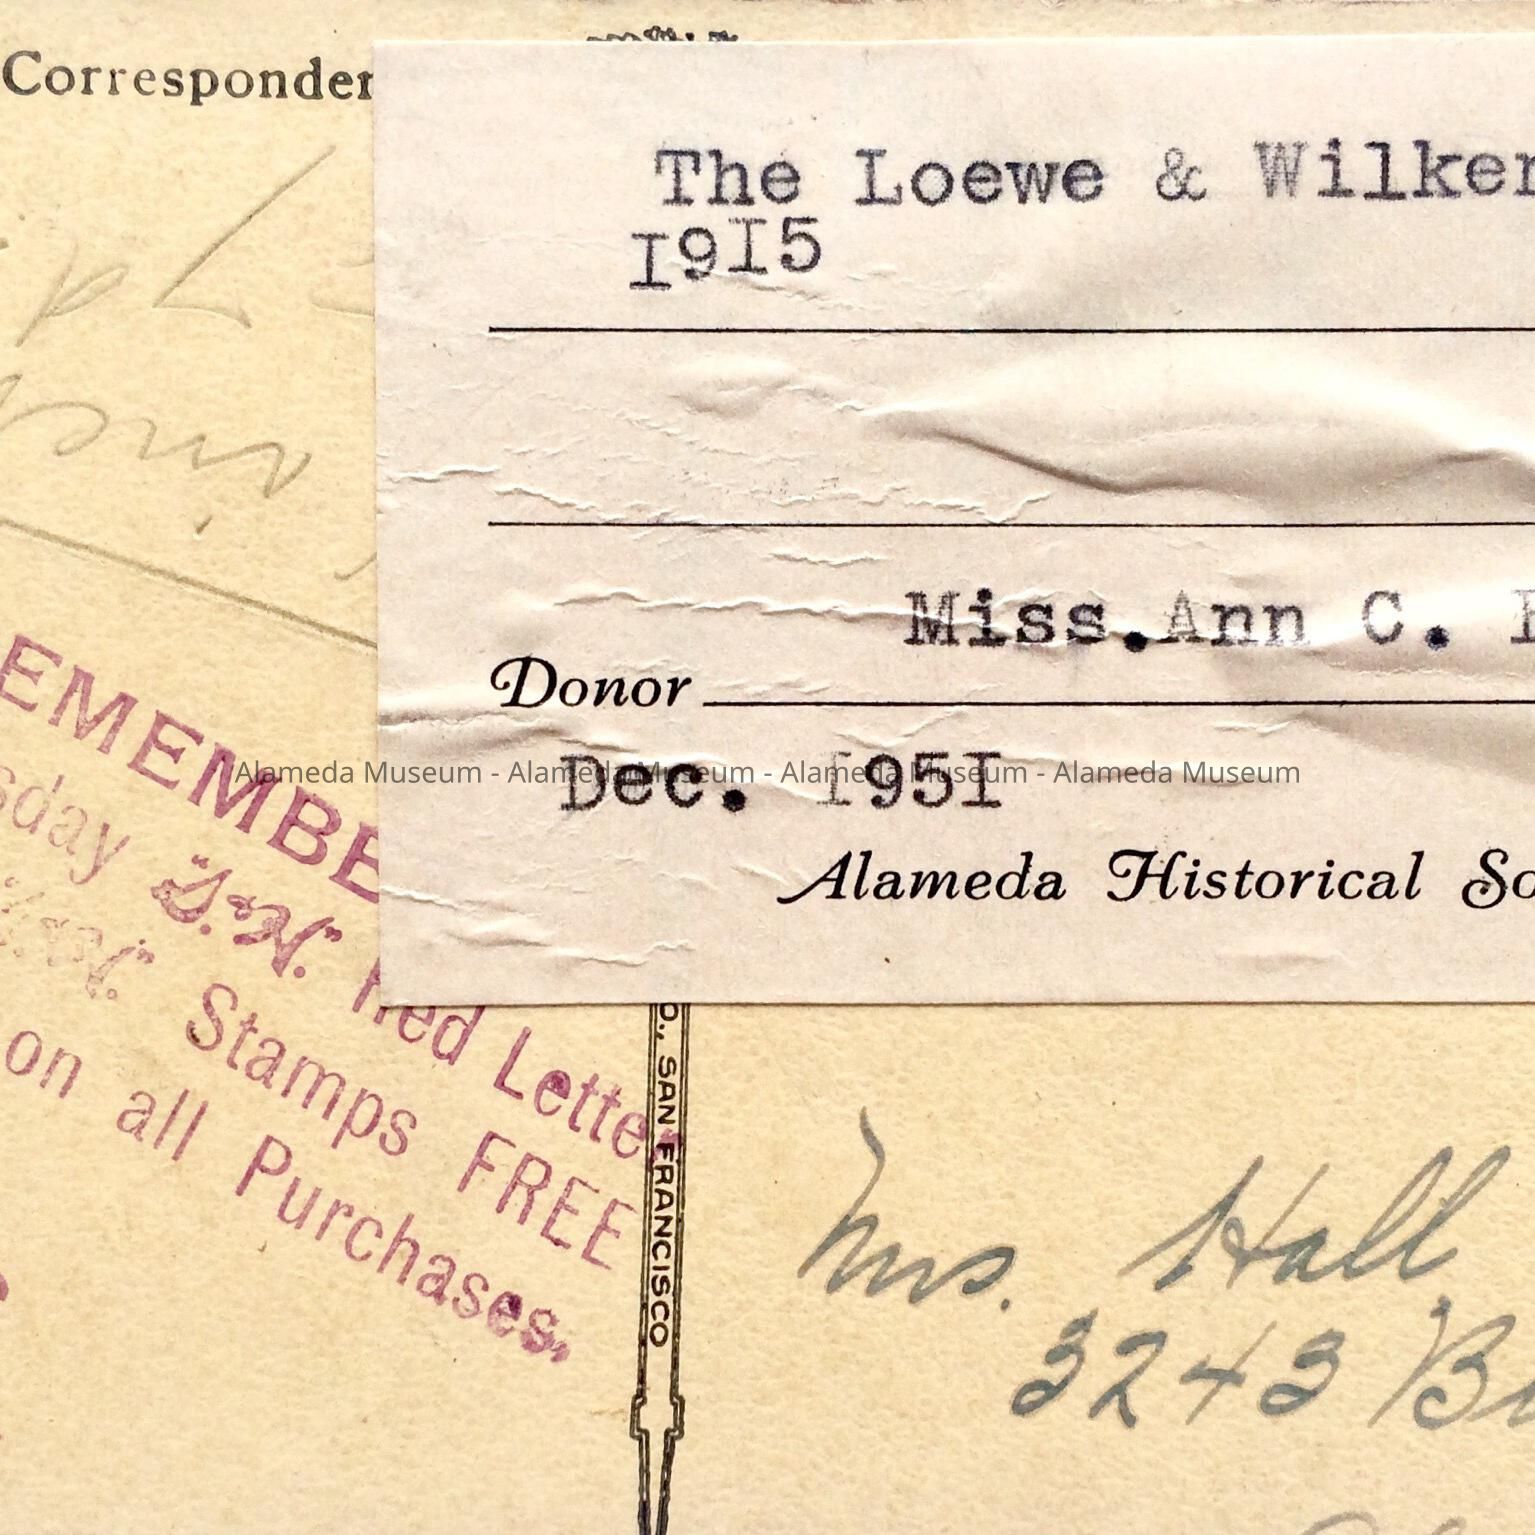 Corresponden
The Loewe & Wilker
1915
Miss.Ann C.
Donor
Dec. 1951
Alameda Museum - Alameda Museum - Alameda Museum - Alameda Museum
Alameda Historical So
EMEMBE
sday "S.&H." Red Letter
"S.&H." Stamps FREE
on all Purchases.
O., SAN FRANCISCO
Mrs. Hall
3243 B